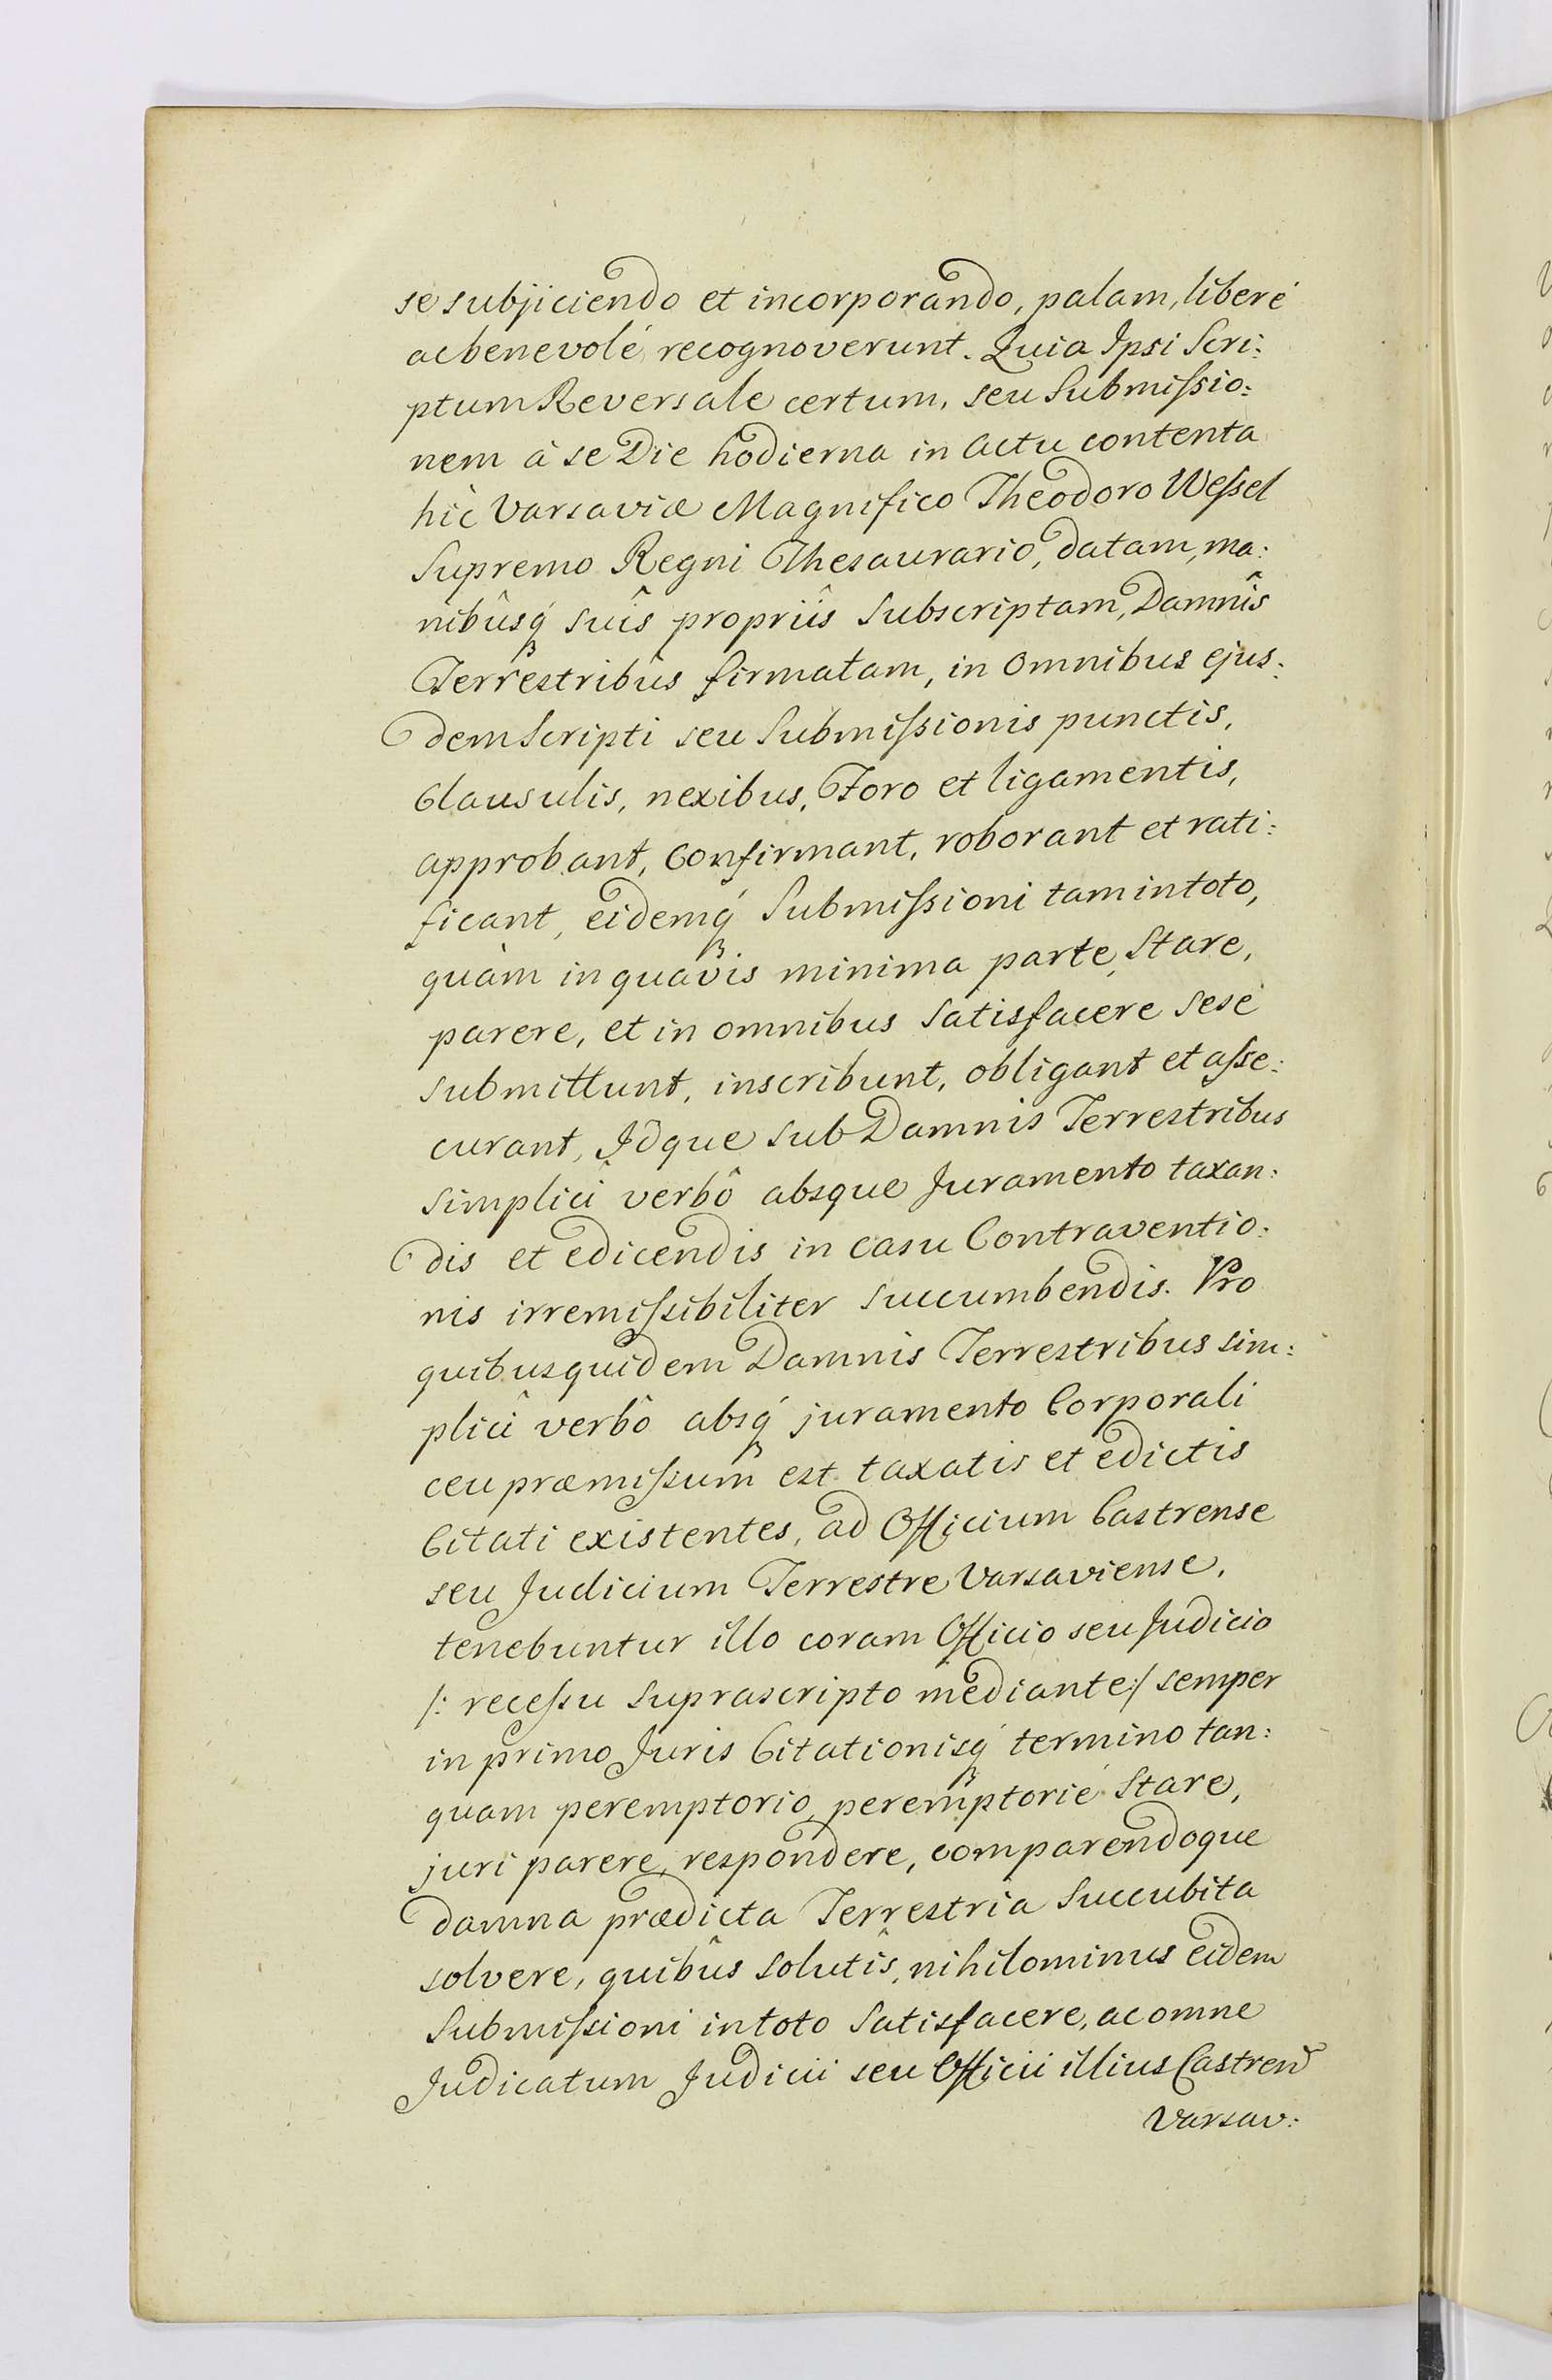 se subjiciendo et incorporando, palam, liberé
ac benevolé recognoverunt. Quia Ipsi Scri:
ptum Reversale certum, seu Submissio:
nem à se Die hodierna in Actu contenta
hîc Varsaviæ Magnifico Theodoro Wessel
Supremo Regni Thesaurario, datam, ma:
nibûsq́ suîs propriîs Subscriptam, Damnîs
Terrestribûs firmatam, in omnibus ejus:
dem Scripti seu Submissionis punctis,
Clausulis, nexibus, Foro et ligamentis,
approbant, Confirmant, roborant et rati:
ficant, eidemq́ Submissioni tam in toto,
quàm in quavis minima parte, Stare,
parere, et in omnibus Satisfacere sese
submittunt, inscribunt, obligant et asse:
curant, Idque sub Damnis Terrestribus
simplici verbô absque Juramento taxan:
dis et edicendis in casu Contraventio:
nis irremissibiliter succumbendis. Pro
quibusquidem Damnis Terrestribus sim:
plici verbô absq́ juramento Corporali
ceu præmissum est taxatis et edictis
Citati existentes, ad Officium Castrense
seu Judicium Terrestre Varsaviense,
tenebuntur illo coram Officio seu Judicio
/: recessu suprascripto mediante :/ semper
in primo Juris Citationisq́ termino tan:
quam peremptorio, peremptorié Stare,
juri parere, respondere, comparendoque
damna prædicta Terrestria Succubita
solvere, quibûs solutîs, nihilominus eidem
Submissioni in toto Satisfacere, ac omne
Judicatum Judicii seu Officii illius Castreñ
Varsav: